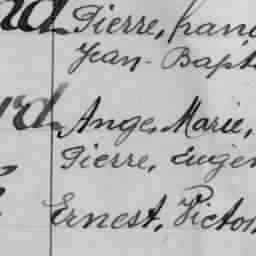 Pierre, franç
Jean-Bapt
rd Ange, Marie,
Pierre, Eugèn
Ernest, Victor